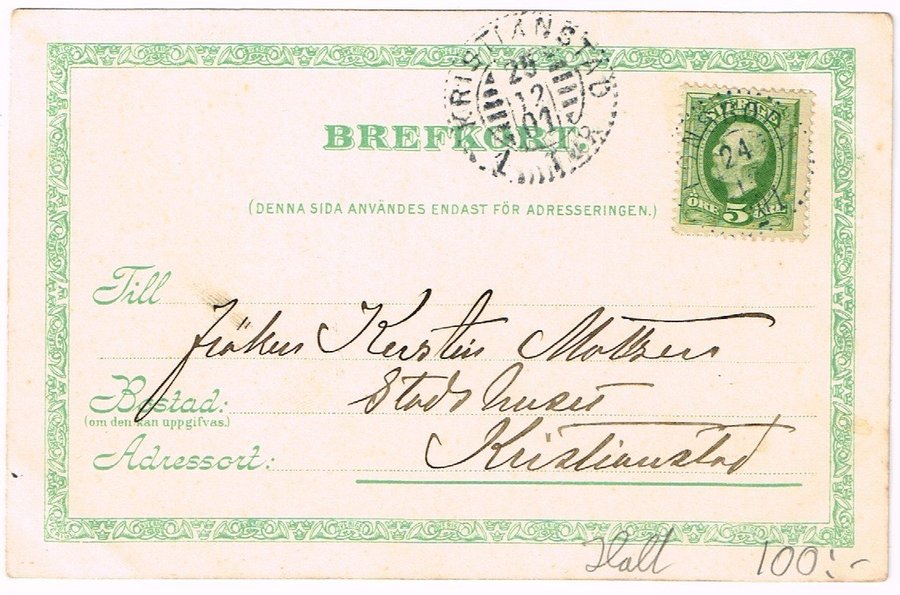 KRISTIANSTAD
25
12
01
BREFKORT.
SVERIGE
24
ÖRE 5
(DENNA SIDA ANVÄNDES ENDAST FÖR ADRESSERINGEN.)
Till
fröken Kerstin
Bostad: Stadshuset
(om den kan uppgifvas.)
Adressort: Kristianstad
100:-